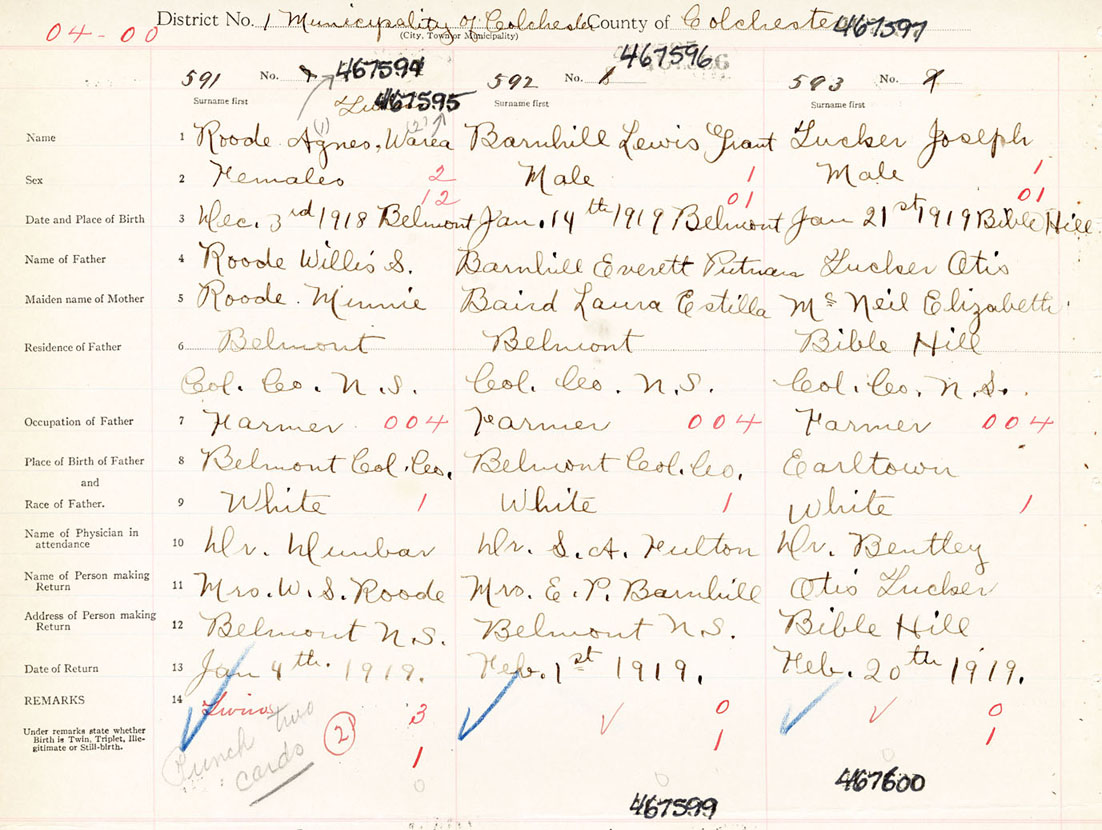 District No. 1 Municipality of Colchester County of Colchester 467597
04-00 (City, Town or Municipality)
467594 467596
591 No. 7 592 No. 8 593 No. 9
Surname first 467595 Surname first Surname first
(1) (2)
Name 1 Roode Agnes, Barnhill Lewis Grant Tucker Joseph
Sex 2 Females 2 Male 1 Male 1
12 01 01
Date and Place of Birth 3 Dec. 3rd 1918 Belmont Jan. 14th 1919 Belmont Jan 21st 1919 Bible Hill
Name of Father 4 Roode Willis S. Barnhill Everett Putnam Tucker Otis
Maiden name of Mother 5 Roode. Minnie Baird Laura Estilla Mc Neil Elizabeth
Residence of Father 6 Belmont Belmont Bible Hill
Col. Co. N.S. Col. Co. N.S. Col. Co. N.S.
Occupation of Father 7 Farmer 004 Farmer 004 Farmer 004
Place of Birth of Father 8 Belmont Col. Co. Belmont Col. Co. Earltown
and
Race of Father. 9 White 1 White 1 White 1
Name of Physician in attendance 10 Dr. Dunbar Dr. S. A. Fulton Dr. Bentley
Name of Person making Return 11 Mrs. W. S. Roode Mrs. E. P. Barnhill Otis Tucker
Address of Person making Return 12 Belmont N.S. Belmont N.S. Bible Hill
Date of Return 13 Jan 4th. 1919. Feb. 1st 1919. Feb. 20th 1919.
REMARKS 14 Twins 3 0 0
Under remarks state whether Birth is Twin, Triplet, Illegitimate or Still-birth. Punch two cards 2 1 1 1
0 0 0
467599 467600